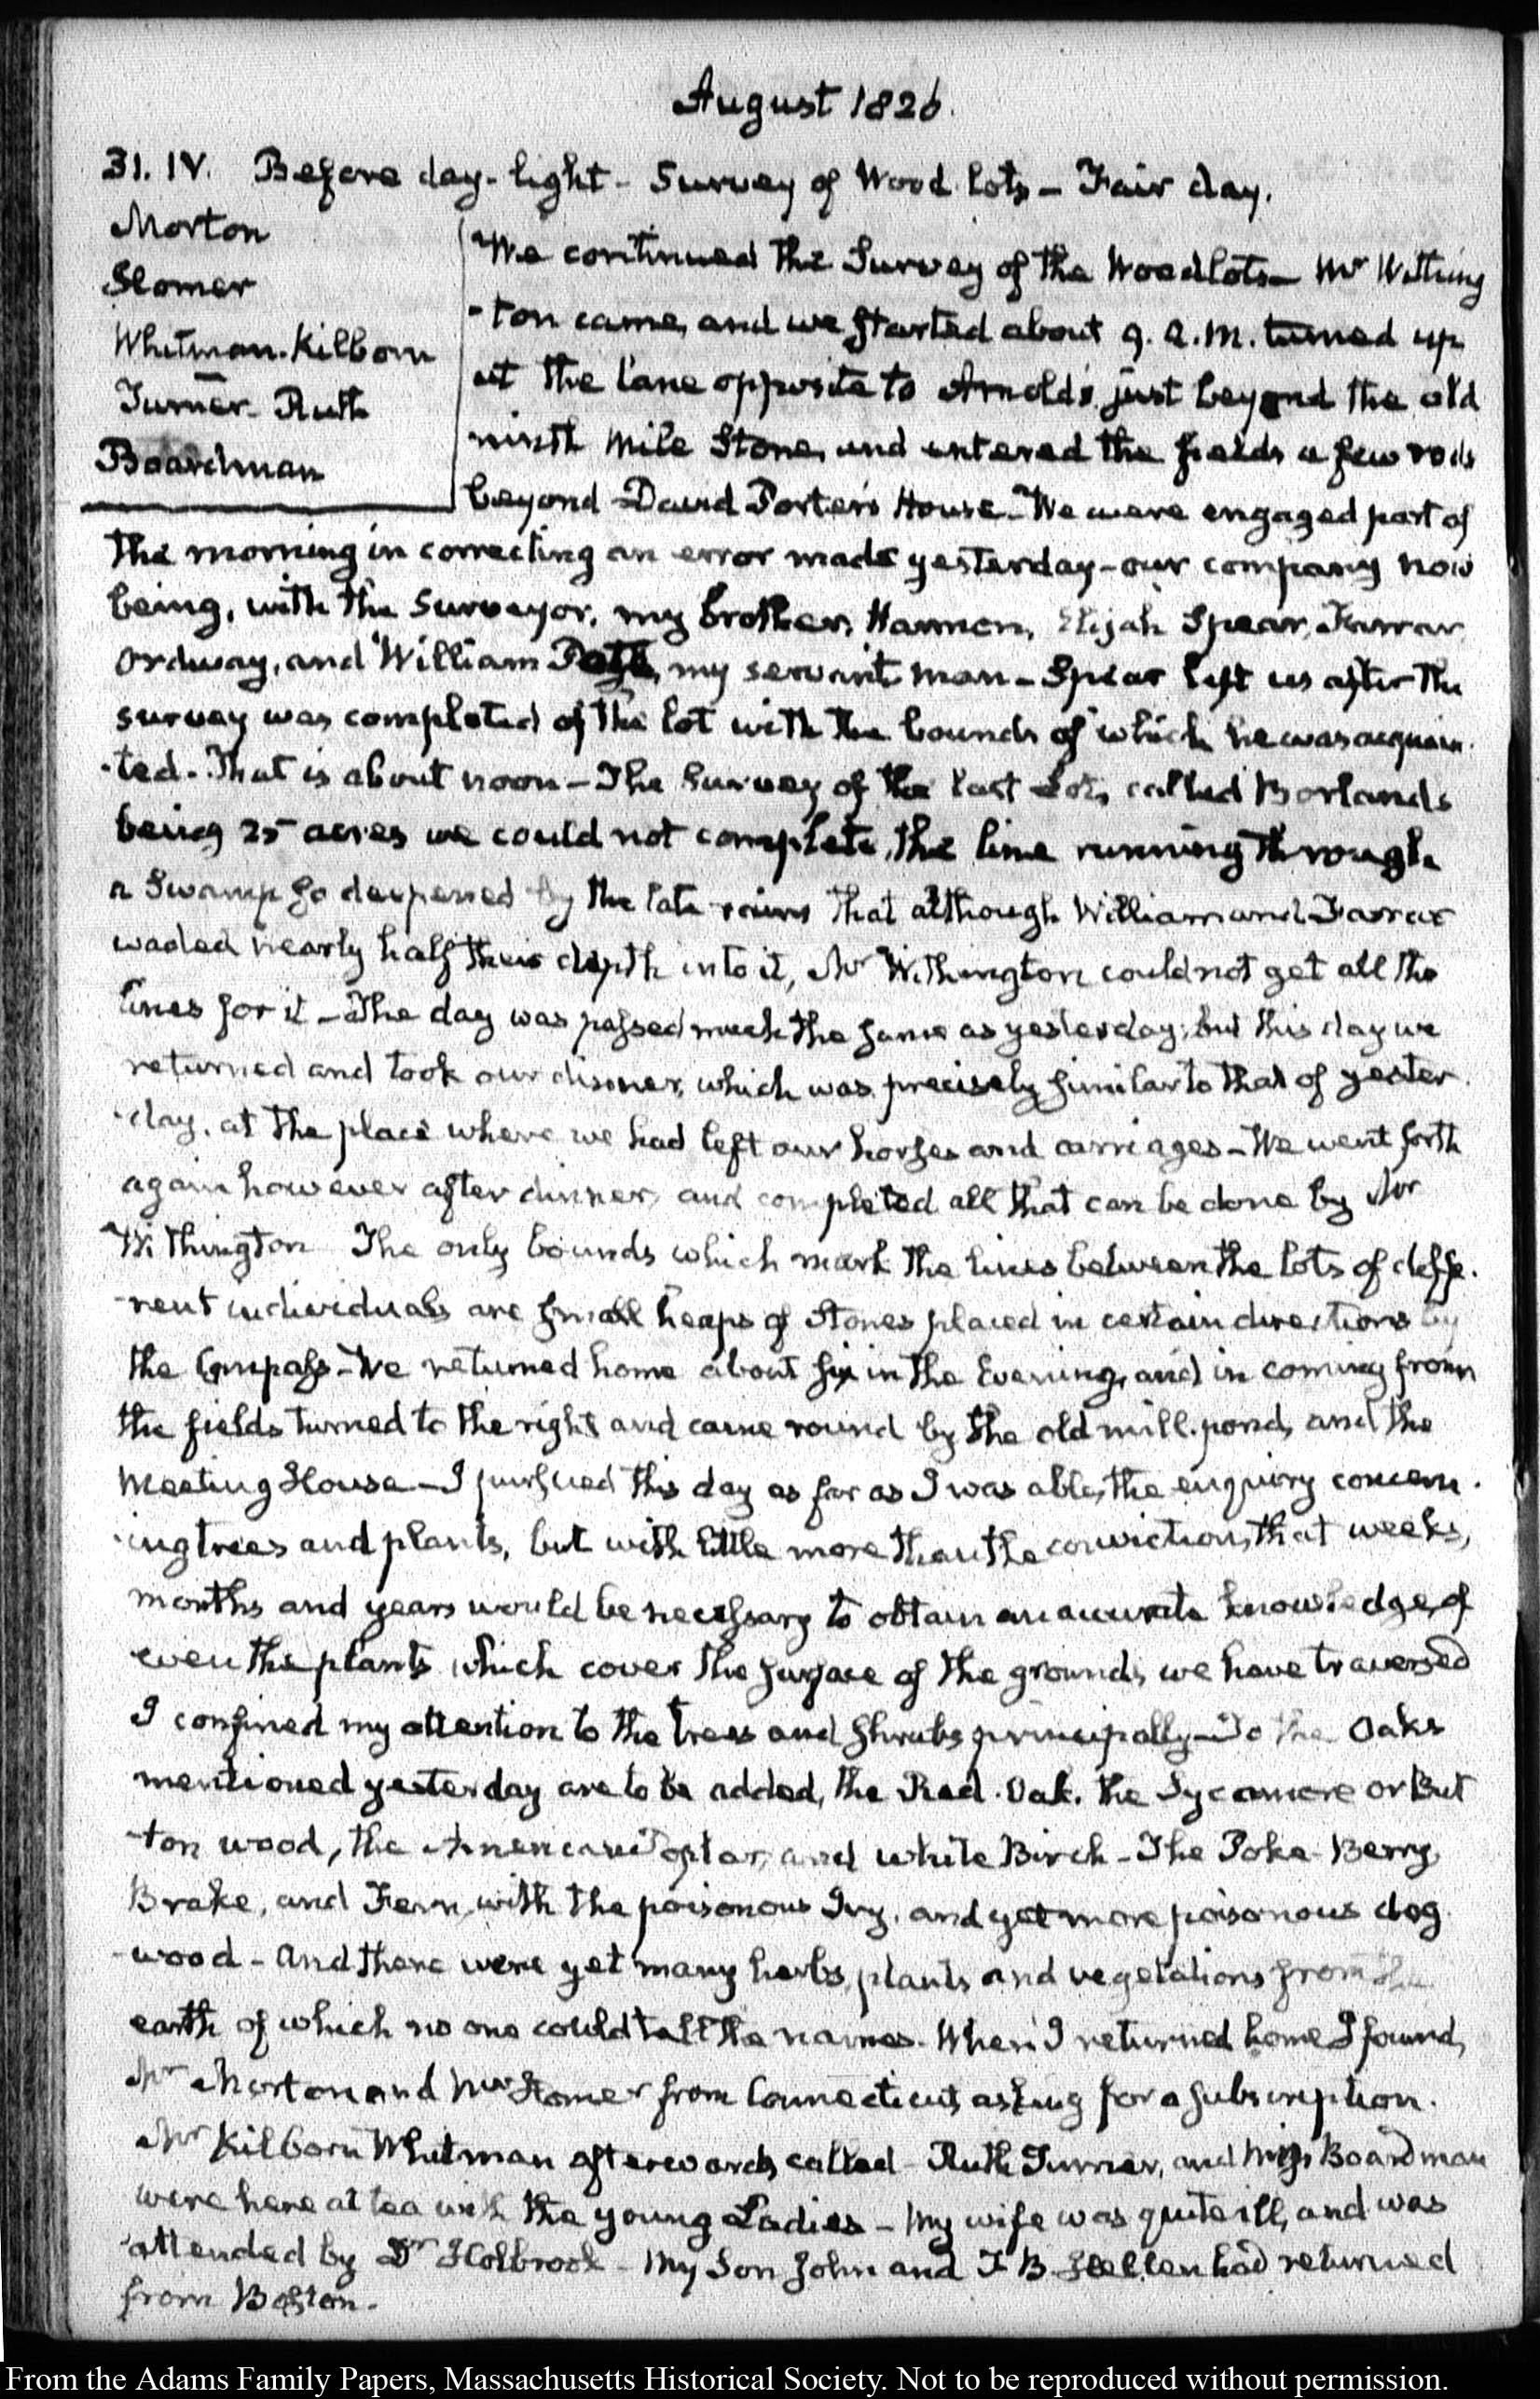 August 1826.
31. IV. Before day-light - Survey of Wood lots - Fair day.
Morton
Homer
Whitman. Kilborn
Turner. Ruth
Boardman
We continued the Survey of the Woodlots - Mr Withing
-ton came, and we started about 9. A.M. turned up
at the lane opposite to Arnold's, just beyond the old
ninth mile Stone, and entered the fields a few rods
beyond David Porter's House - We were engaged part of
the morning in correcting an error made yesterday - our company now
being, with the Surveyor, my brother, Harmon, Elijah Spear, Farrar
Ordway, and William my servant man - Spear left us after the
survey was completed of the lot with the bounds of which he was acquain-
-ted. That is about noon - The Survey of the last Lot, called Borlands
being 25 acres we could not complete, the line running through
a Swamp so deepened by the late rains that although William and Farrar
waded nearly half their depth into it, Mr Withington could not get all the
lines for it - The day was passed much the same as yesterday; but this day we
returned and took our dinner, which was precisely similar to that of yester-
-day, at the place where we had left our horses and carriages - We went forth
again however after dinner, and completed all that can be done by Mr
Withington The only bounds which mark the lines between the lots of diffe-
-rent individuals are small heaps of Stones placed in certain directions by
the Compass - We returned home about six in the Evening, and in coming from
the fields turned to the right and came round by the old mill-pond, and the
Meeting House - I pursued this day as far as I was able, the enquiry concern-
-ing trees and plants, but with little more than the conviction, that weeks,
months and years would be necessary to obtain an accurate knowledge, of
even the plants which cover the surface of the grounds we have traversed
I confined my attention to the trees and shrubs principally - To the Oaks
mentioned yesterday are to be added, the Red-Oak, the Sycamore or But
-ton wood, the American Poplar, and white Birch - The Poke-Berry,
Brake, and Fern, with the poisonous Ivy, and yet more poisonous dog-
-wood - And there were yet many herbs, plants and vegetations from the
earth of which no one could tell the names. When I returned home I found,
Mr Morton and Mr Homer from Connecticut, asking for a subscription.
Mr Kilborn Whitman afterwards called - Ruth Turner, and Miss Boardman
were here at tea with the young Ladies - My wife was quite ill, and was
attended by Dr Holbrook - My Son John and J. B. Hellen had returned
from Boston.
From the Adams Family Papers, Massachusetts Historical Society. Not to be reproduced without permission.